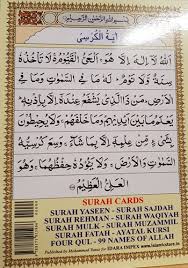 بِسْمِ اللهِ الرَّحْمٰنِ الرَّحِيْمِ
اٰيَةُ الْكُرْسِي
اَللهُ لَآ اِلٰهَ اِلَّا هُوَ ۚ اَلْحَىُّ الْقَيُّوْمُ ۚ لَا تَاْخُذُهٗ
سِنَةٌ وَّلَا نَوْمٌ ؕ لَهٗ مَا فِى السَّمٰوٰتِ وَمَا فِى
الْاَرْضِ ؕ مَنْ ذَا الَّذِىْ يَشْفَعُ عِنْدَهٗٓ اِلَّا بِاِذْنِهٖ ؕ
يَعْلَمُ مَا بَيْنَ اَيْدِيْهِمْ وَمَا خَلْفَهُمْ ۚ وَلَا يُحِيْطُوْنَ
بِشَىْءٍ مِّنْ عِلْمِهٖٓ اِلَّا بِمَا شَآءَ ۚ وَسِعَ كُرْسِيُّهُ
السَّمٰوٰتِ وَالْاَرْضَ ۚ وَلَا يَئُوْدُهٗ حِفْظُهُمَا ۚ وَهُوَ
الْعَلِىُّ الْعَظِيْمُ
SURAH CARDS
SURAH YASEEN - SURAH SAJDAH
SURAH REHMAN - SURAH WAQIYAH
SURAH MULK - SURAH MUZAMIL
SURAH FATAH - AYATAL KURSI
FOUR QUL - 99 NAMES OF ALLAH
IDARA IMPEX